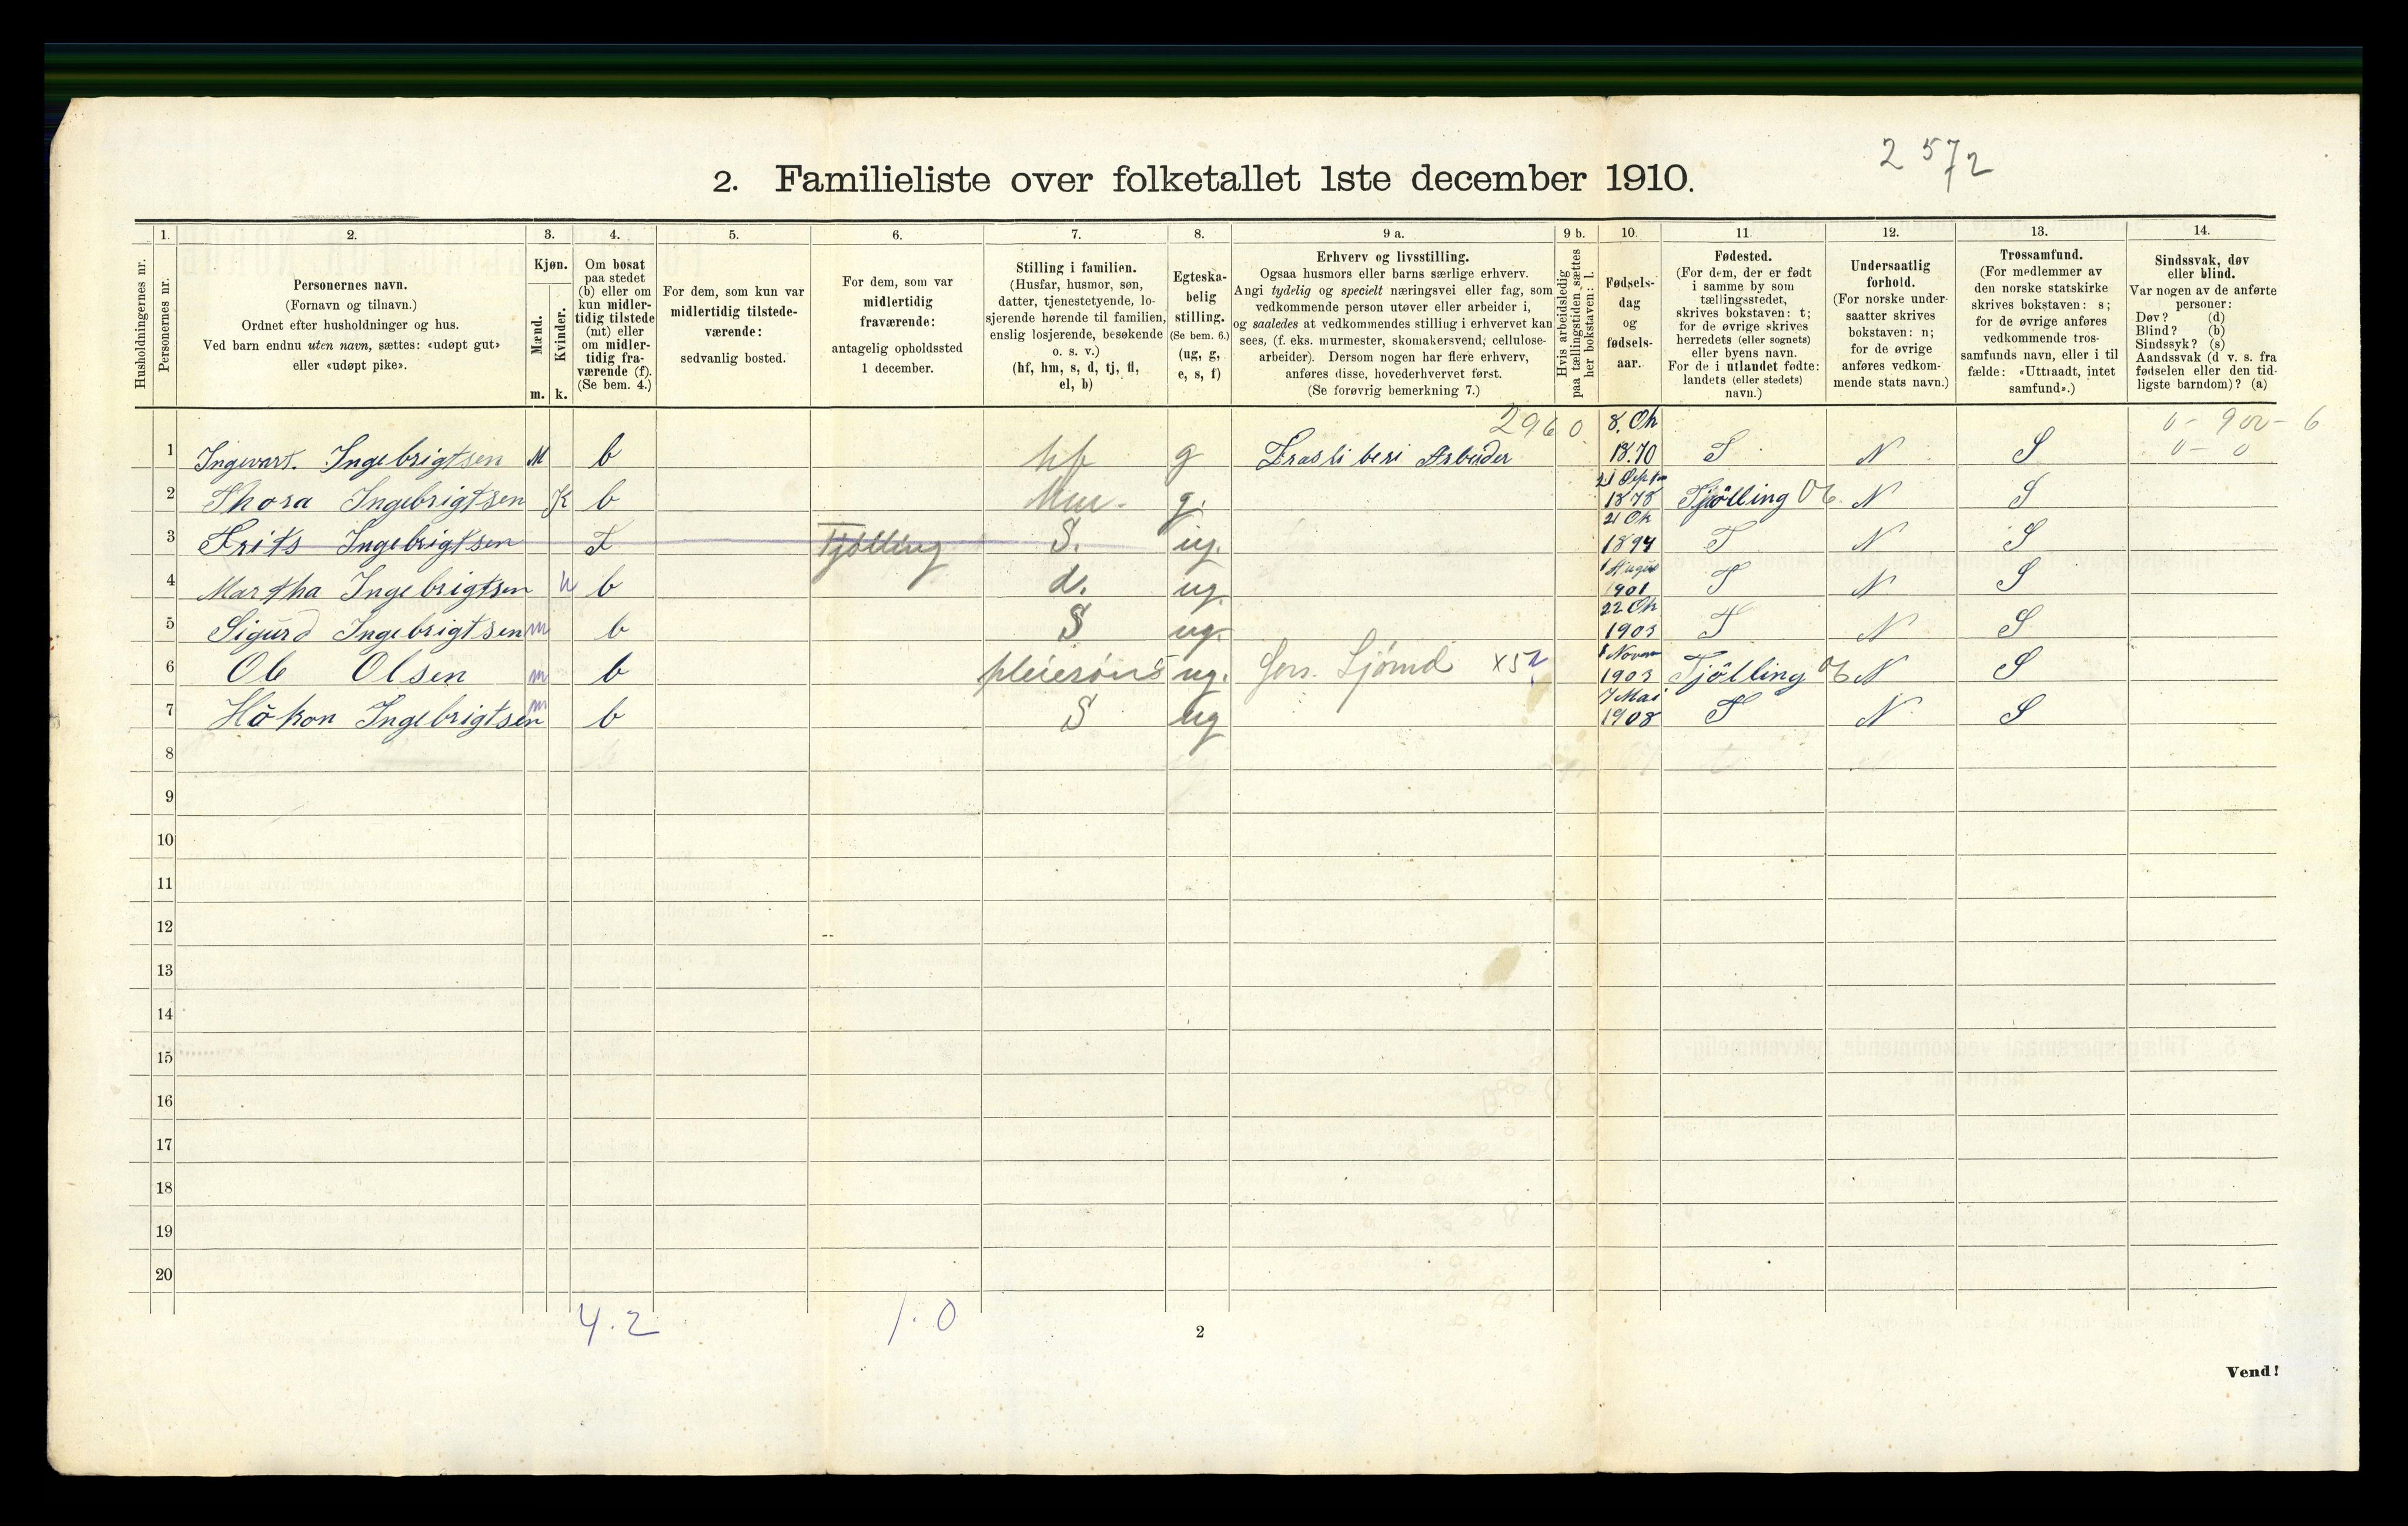 2 572
2. Familieliste over folketallet 1ste december 1910.
Husholdningernes nr.
1.
Personernes nr.
2.
Personernes navn.
(Fornavn og tilnavn.)
Ordnet efter husholdninger og hus.
Ved barn endnu uten navn, sættes: «udøpt gut»
eller «udøpt pike».
3.
Kjøn.
Mænd.
Kvinder.
m. k.
4.
Om bosat
paa stedet
(b) eller om
kun midler-
tidig tilstede
(mt) eller
om midler-
tidig fra-
værende (f).
(Se bem. 4.)
5.
For dem, som kun var
midlertidig tilstede-
værende:
sedvanlig bosted.
6.
For dem, som var
midlertidig
fraværende:
antagelig opholdssted
1 december.
7.
Stilling i familien.
(Husfar, husmor, søn,
datter, tjenestetyende, lo-
sjerende hørende til familien,
enslig losjerende, besøkende
o. s. v.)
(hf, hm, s, d, tj, fl,
el, b)
8.
Egteska-
belig
stilling.
(Se bem. 6.)
(ug, g,
e, s, f)
9 a.
Erhverv og livsstilling.
Ogsaa husmors eller barns særlige erhverv.
Angi tydelig og specielt næringsvei eller fag, som
vedkommende person utøver eller arbeider i,
og saaledes at vedkommendes stilling i erhvervet kan
sees, (f. eks. murmester, skomakersvend, cellulose-
arbeider). Dersom nogen har flere erhverv,
anføres disse, hovederhvervet først.
(Se forøvrig bemerkning 7.)
9 b.
Hvis arbeidsledig
paa tællingstiden, sættes
her bokstaven: l.
10.
Fødsels-
dag
og
fødsels-
aar.
11.
Fødested.
(For dem, der er født
i samme by som
tællingsstedet,
skrives bokstaven: t;
for de øvrige skrives
herredets (eller sognets)
eller byens navn.
For de i utlandet fødte:
landets (eller stedets)
navn.)
12.
Undersaatlig
forhold.
(For norske under-
saatter skrives
bokstaven: n;
for de øvrige
anføres vedkom-
mende stats navn.)
13.
Trossamfund.
(For medlemmer av
den norske statskirke
skrives bokstaven: s;
for de øvrige anføres
vedkommende tros-
samfunds navn, eller i til
fælde: «Uttraadt, intet
samfund».)
14.
Sindssvak, døv
eller blind.
Var nogen av de anførte
personer:
Døv? (d)
Blind? (b)
Sindssyk? (s)
Aandssvak (d v. s. fra
fødselen eller den tid-
ligste barndom)? (a)
2960 8. Ok 0 - 900 - 6
1 Ingvart. Ingebrigtsen M b hf g Arbeider 1870 T N S 0 - 0
21 Septm
2 Thora Ingebrigtsen K b g. 1878 Tjølling 06. N S
21 Ok
3 Frits Ingebrigtsen F Tjølling S. ug. 1894 T N S
1 August
4 Martha Ingebrigtsen k b d. ug. 1901 T N S
22 Ok
5 Sigurd Ingebrigtsen m b S ug. 1903 T N S
1 Novem
6 Ole Olsen m b pleiesøn ug. fors. X52 1903 Tjølling 06 N S
7 Mai
7 Håkon Ingebrigtsen m b S ug 1908 T N S
8
9
10
11
12
13
14
15
16
17
18
19
20
4.2 1.0
2
Vend!